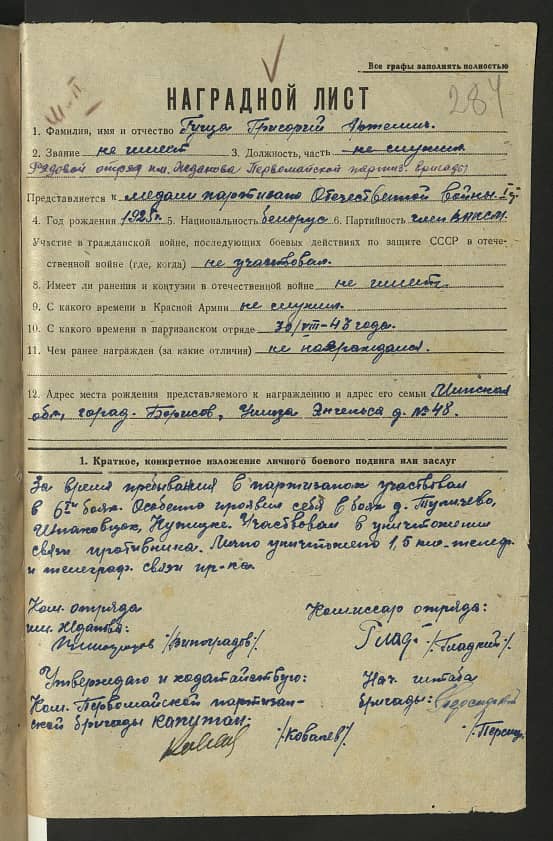 Все графы заполнять полностью
284
НАГРАДНОЙ ЛИСТ
1. Фамилия, имя и отчество Гуща Григорий Артемич.
2. Звание не имеет 3. Должность, часть не служил
Рядовой отряд им. Жданова Первомайской партиз. бригады
Представляется к медали партизана Отечественной войны
4. Год рождения 1925г. 5. Национальность белорус 6. Партийность член ВЛКСМ.
Участие в гражданской войне, последующих боевых действиях по защите СССР в отече-
ственной войне (где, когда) не участвовал.
8. Имеет ли ранения и контузии в отечественной войне не имеет.
9. С какого времени в Красной Армии не служил.
10. С какого времени в партизанском отряде 30/VIII-43 года.
11. Чем ранее награжден (за какие отличия) не награждался.
12. Адрес места рождения представляемого к награждению и адрес его семьи Минская
обл, город. Борисов, Улица Энгельса д. №48.
1. Краткое, конкретное изложение личного боевого подвига или заслуг
За время пребывания в партизанах участвовал
в 6ти боях. Особенно проявил себя в боях д.
Шпаковцах, Участвовал в уничтожении
связи противника. Лично уничтожено 1,5 клм. телеф.
и телеграф. связи пр-ка.
Ком. отряда
им. Жданова:
/Виноградов/.
Комиссар отряда:
Глад /Гладкий/
Утверждаю и ходатайствую:
Ком. Первомайской партизан-
ской бригады капитан:
/Ковалев/.
Нач. штаба
бригады: